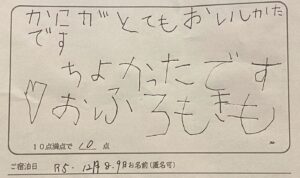 かにがとてもおいしかた
です
ちよかったです
♡おふろもきも
10点満点で 10 点
ご宿泊日 R5. 12月8.9日 お名前(匿名可)